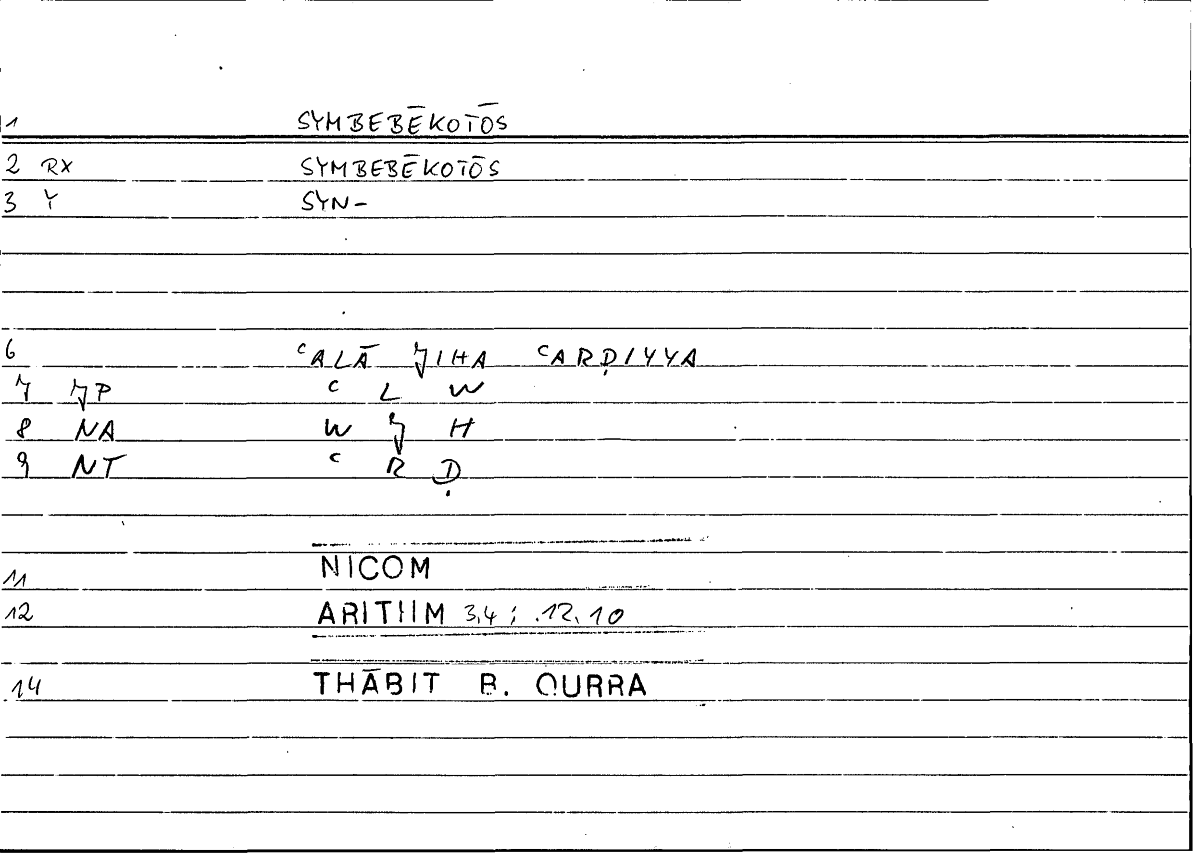 1 SYMBEBĒKOTŌS
2 RX SYMBEBĒKOTŌS
3 Y SYN-
6 ʿALĀ J̌IHA ʿARḌIYYA
7 J̌P ʿ L W
8 NA W J̌ H
9 NT ʿ R Ḍ
11 NICOM
12 ARITHM 3,4 ; 12,10
14 THĀBIT B. QURRA